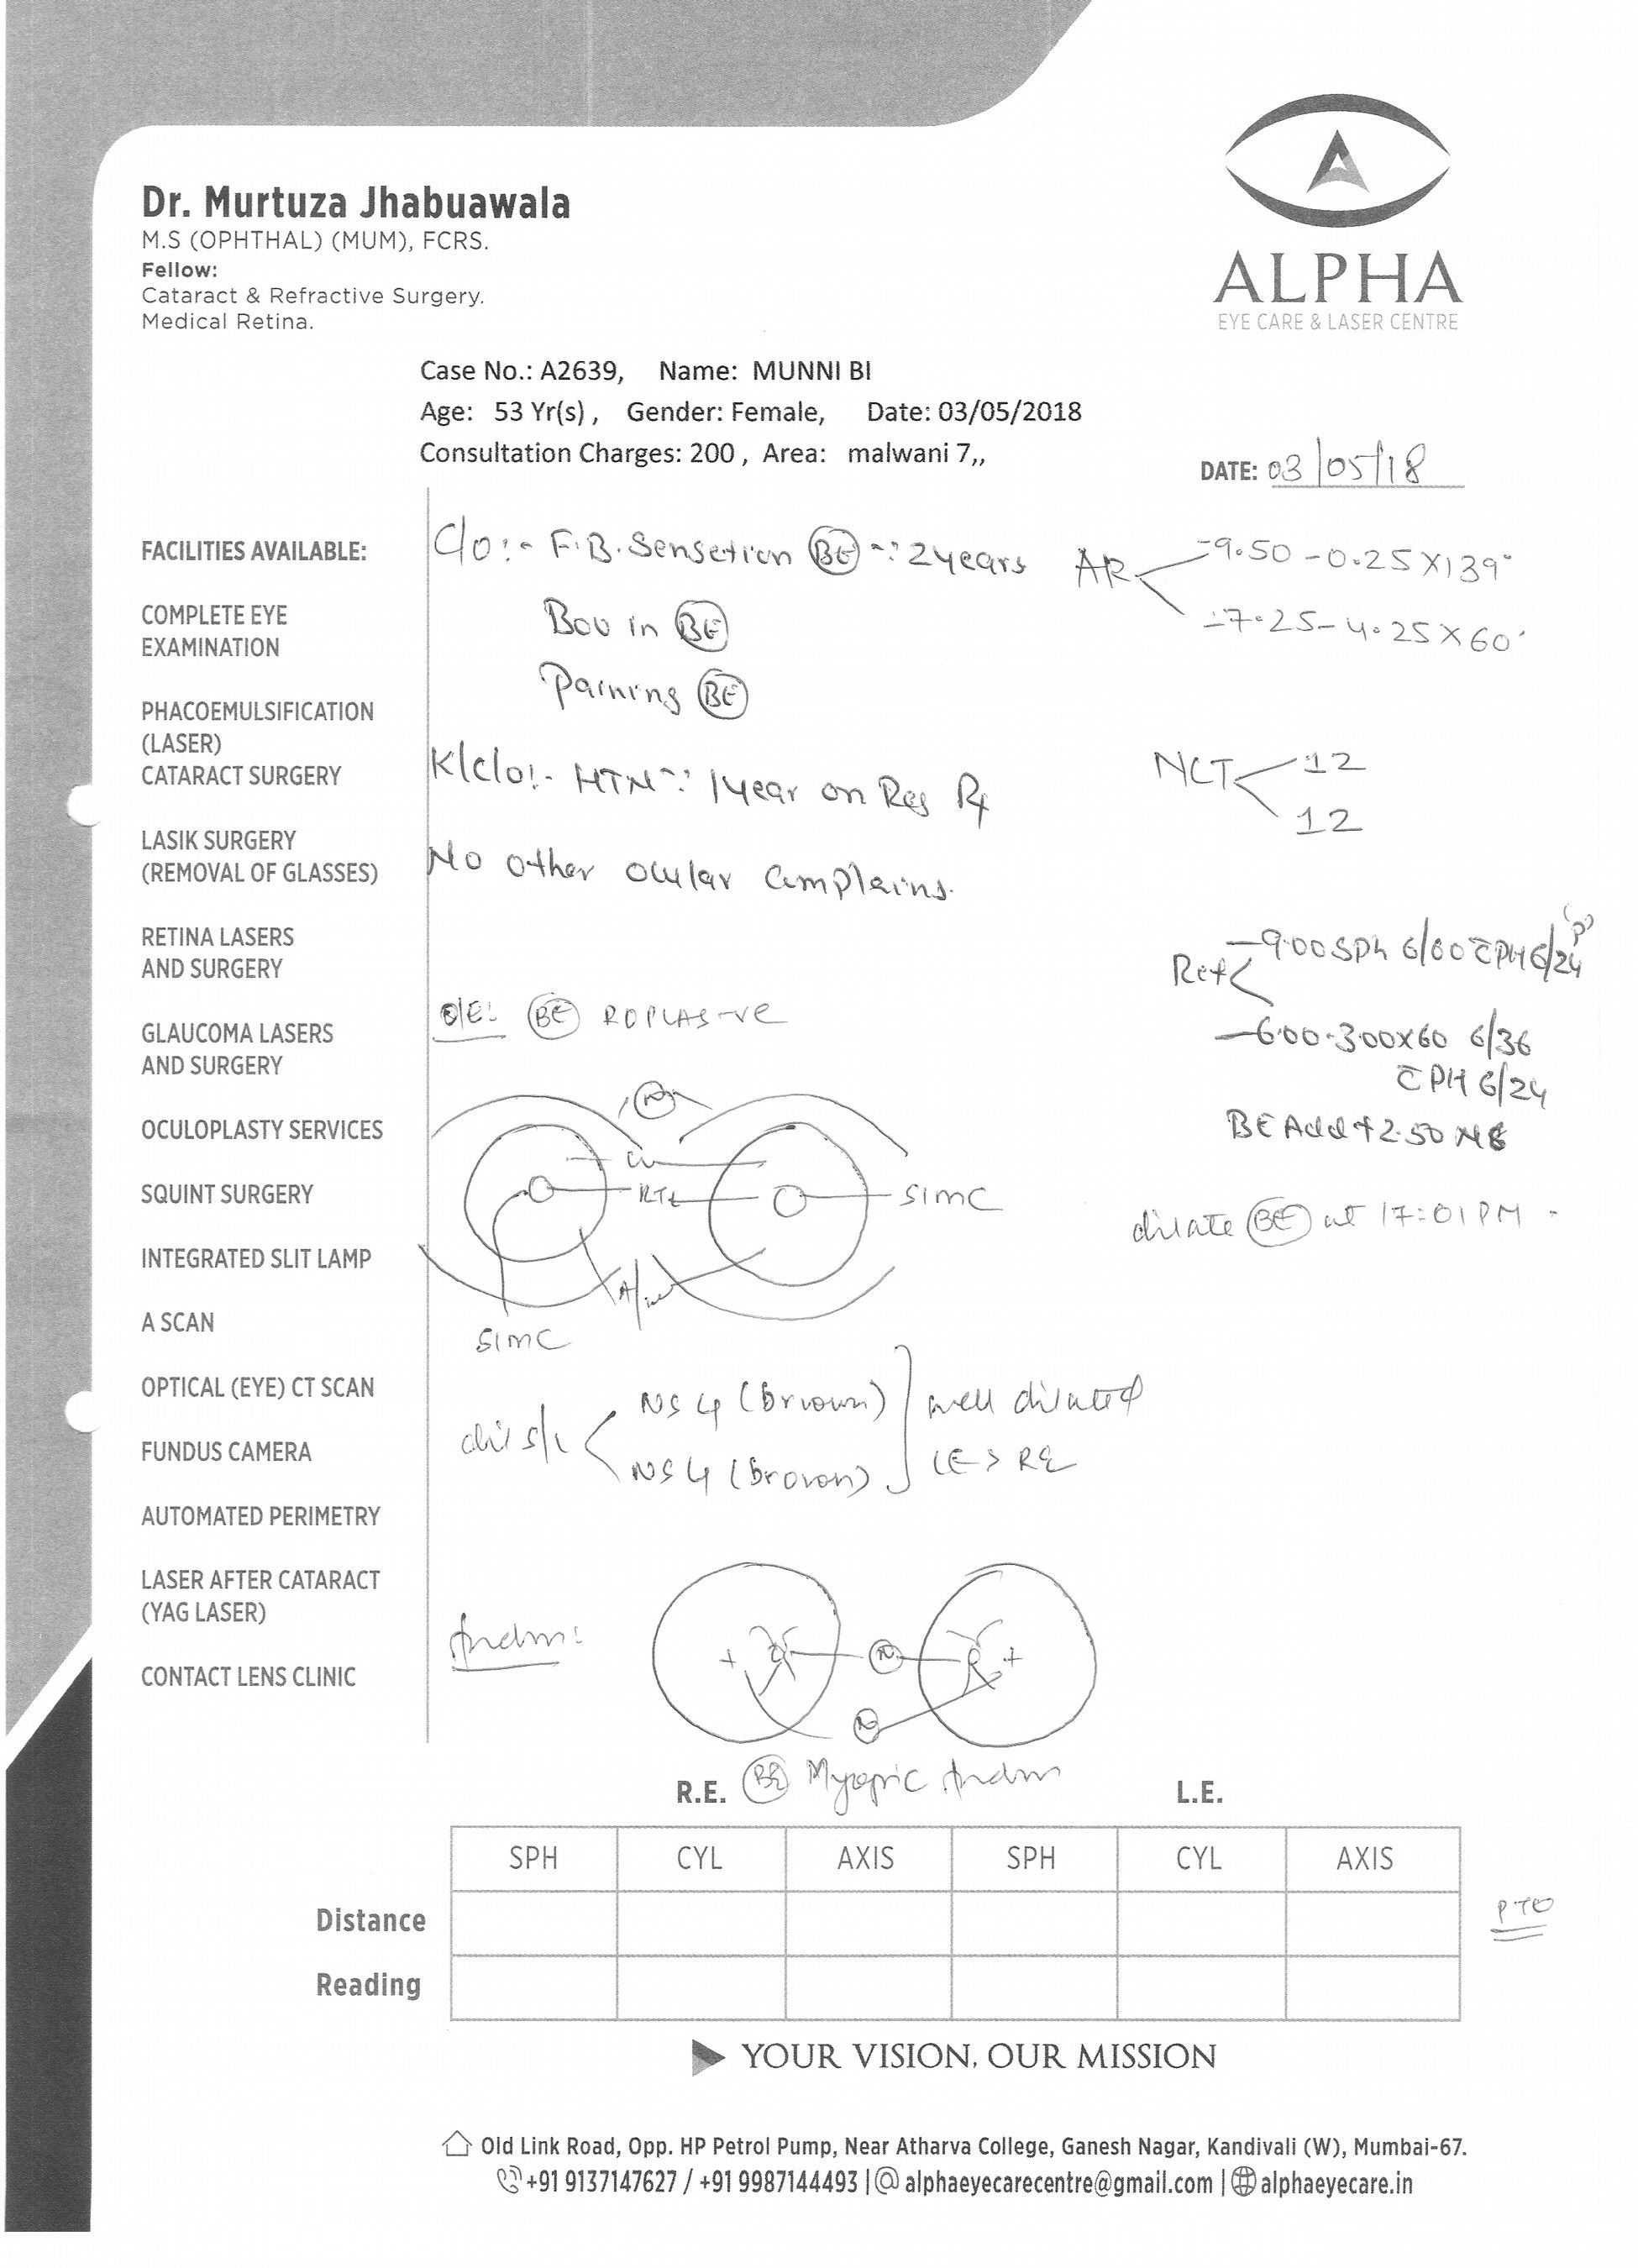 Dr. Murtuza Jhabuawala
M.S (OPHTHAL) (MUM), FCRS.
Fellow:
Cataract & Refractive Surgery.
Medical Retina.
ALPHA
EYE CARE & LASER CENTRE
Case No.: A2639, Name: MUNNI BI
Age: 53 Yr(s) , Gender: Female, Date: 03/05/2018
Consultation Charges: 200 , Area: malwani 7,,
DATE: 03/05/18
FACILITIES AVAILABLE:
COMPLETE EYE
EXAMINATION
PHACOEMULSIFICATION
(LASER)
CATARACT SURGERY
LASIK SURGERY
(REMOVAL OF GLASSES)
RETINA LASERS
AND SURGERY
GLAUCOMA LASERS
AND SURGERY
OCULOPLASTY SERVICES
SQUINT SURGERY
INTEGRATED SLIT LAMP
A SCAN
OPTICAL (EYE) CT SCAN
FUNDUS CAMERA
AUTOMATED PERIMETRY
LASER AFTER CATARACT
(YAG LASER)
CONTACT LENS CLINIC
C/O:- F.B. Sensetion BE ~: 2 years
Bov in BE
Paining BE
K/c/o:- HTN ~: 1 year on Reg Rx
No other ocular complains.
AR -9.50 -0.25 X 139°
-7.25 - 4.25 X 60°
NCT 12
12
-9.00 Sph 6/60 c̄ PH 6/24 (P)
-6.00 -3.00x60 6/36
c̄ PH 6/24
BE Add +2.50 N6
dilate BE at 17:01 PM
O/E: BE ROPLAS -ve
N
RTL
SIMC
SIMC
dil s/l NS 4 (brown) well dilated
NS 4 (brown) LE > RE
N
N
R.E. BE Myopic L.E.
SPH CYL AXIS SPH CYL AXIS
Distance
Reading
PTO
YOUR VISION, OUR MISSION
Old Link Road, Opp. HP Petrol Pump, Near Atharva College, Ganesh Nagar, Kandivali (W), Mumbai-67.
+91 9137147627 / +91 9987144493 | @ alphaeyecarecentre@gmail.com | alphaeyecare.in